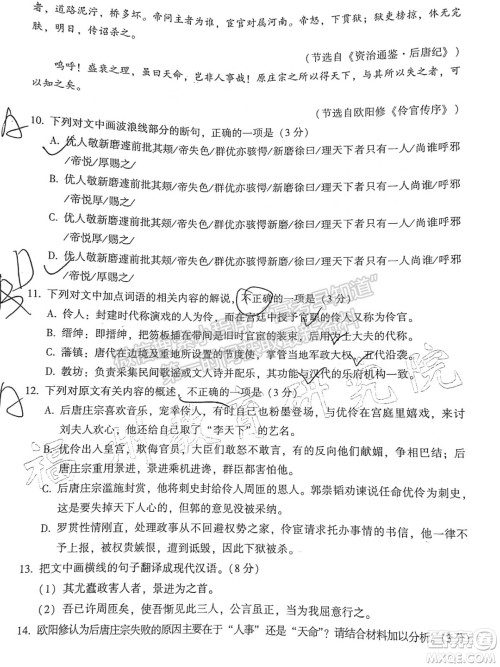 者，道路泥泞，桥多坏。帝问主者为谁，宦官对属河南。帝怒，下贯狱；狱吏榜掠，体无完
肤，明日，传诏杀之。
（节选自《资治通鉴·后唐纪》）
呜呼！盛衰之理，虽曰天命，岂非人事哉！原庄宗之所以得天下，与其所以失之者，可以知之矣。
（节选自欧阳修《伶官传序》）
A
10. 下列对文中画波浪线部分的断句，正确的一项是（3 分）
A. 优人敬新磨遽前批其颊/帝失色/群优亦骇愕/新磨徐曰/理天下者只有一人/尚谁呼邪
/帝悦/厚赐之/
B. 优人敬新磨遽前批其颊/帝失色/群优亦骇愕新磨/徐曰/理天下者只有一人/尚谁/呼邪
/帝悦厚/赐之/
C. 优人敬新磨遽前批其颊/帝失色/群优亦骇愕新磨/徐曰/理天下者只有一人/尚谁呼邪
/帝悦厚/赐之/
D. 优人敬新磨遽前批其颊/帝失色/群优亦骇愕/新磨徐曰/理天下者只有一人/尚谁/呼邪
/帝悦/厚赐之/
D
11. 下列对文中加点词语的相关内容的解说，不正确的一项是（3 分）
A. 伶人：封建时代称演戏的人，而在宫廷中授于官职的伶人又称为伶官。
B. 缙绅：即搢绅，把笏板插于带间是旧时官宦的装束，后用为士大夫的代称。
C. 藩镇：唐代开始在边境和重要地区所设置的节度使，掌握当地军政大权，五代沿袭。
D. 教坊：负责采集民间歌谣或文人诗并配乐，其功能与汉代的乐府机构一致。
12. 下列对原文有关内容的概述，不正确的一项是（3 分）
A. 后唐庄宗喜欢音乐，宠幸伶人，有时自己也粉墨登场，与优伶在宫庭里嬉戏，来
讨刘夫人欢心，于是得到了“李天下”的艺名。
B. 优伶出入皇宫，欺侮官员，大臣们敢怒不敢言，有的反而向他们献媚，争相巴结；后
唐庄宗重用景进，景进乘机进谗，干预政事。
C. 后唐庄宗滥施封赏，伶人周匝的恩人也得以封官。郭崇韬劝谏说任命优伶为刺史，
这是要失去天下人心的，但郭的意见没有被庄宗采用。
D. 罗贯性情刚直，对提出不法要求的人从不回避权势之家，伶宦请托办事的书信，他一律
不予答复，因而被人怨恨，遭到诋毁，最后下狱被杀。
13. 把文中画横线的句子翻译成现代汉语。（8 分）
（1）其尤蠹政害人者，景进为之首。
（2）吾已许周匝矣，使吾惭见此三人。
14. 欧阳修认为后唐庄宗失败的原因主要在于“人事”还是“天命？请结合材料加以分析。